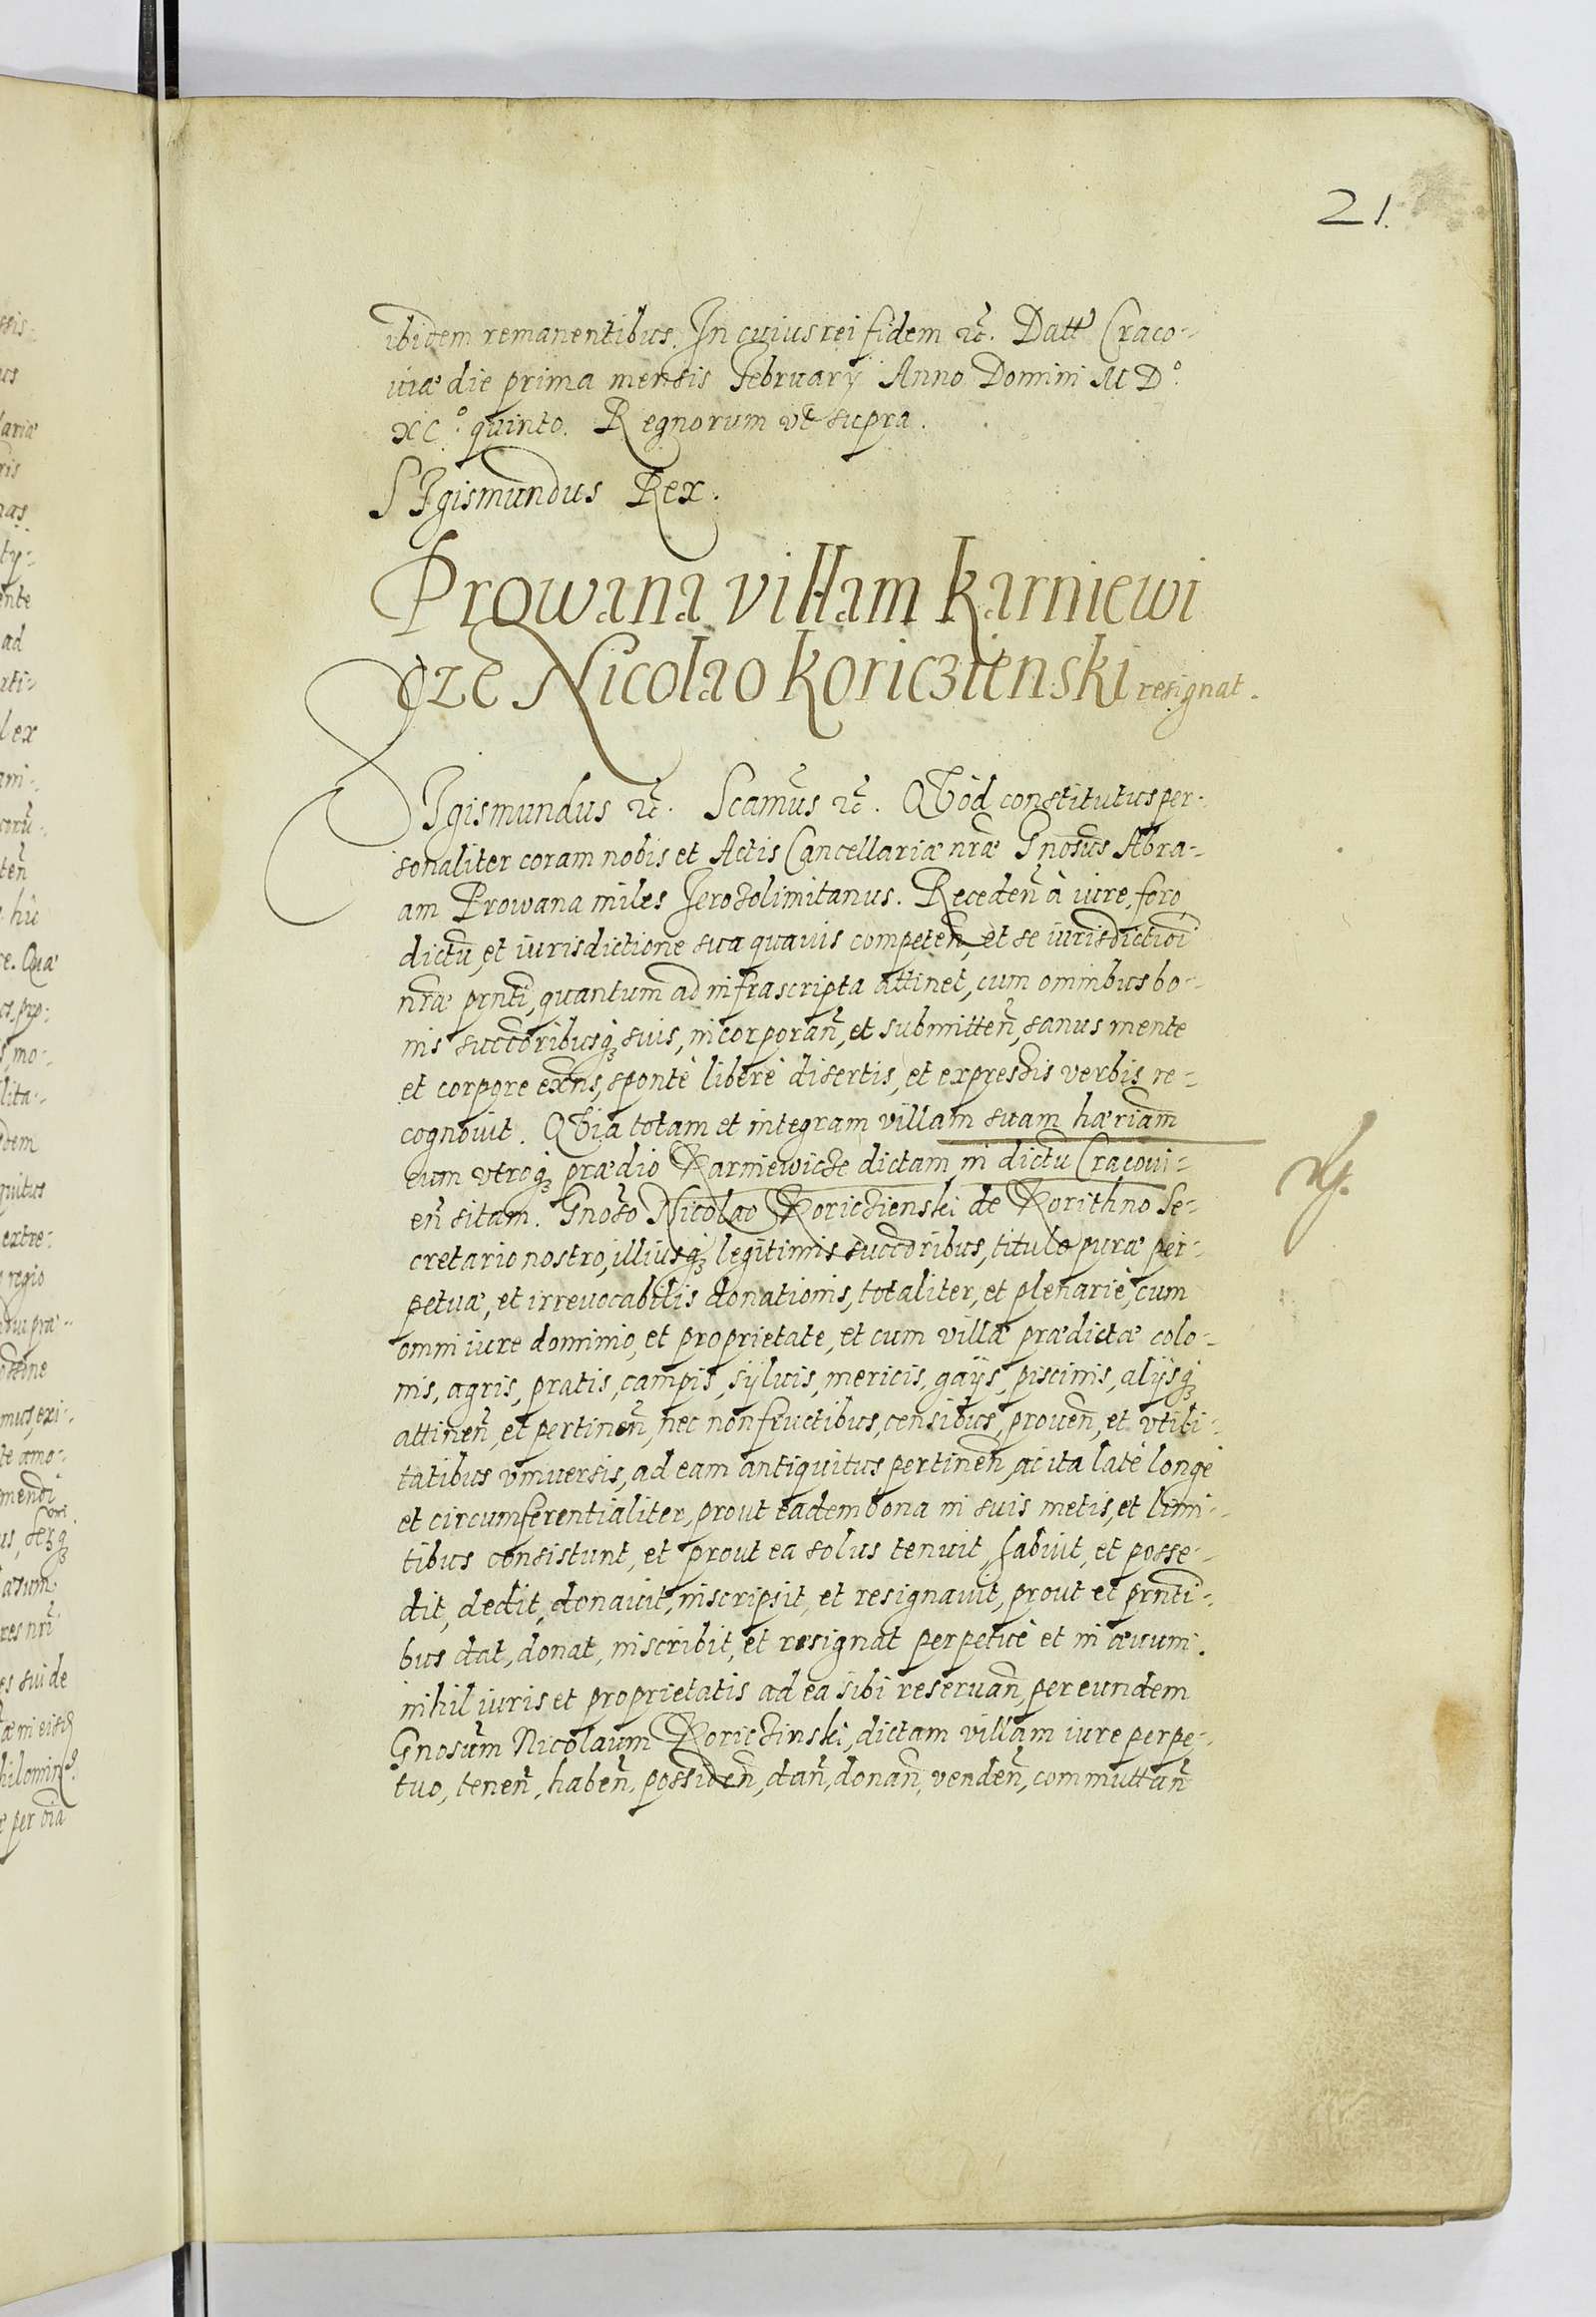 21.
ibidem remanentibus. In cuius rei fidem etc̃. Datt Craco-
uiæ die prima mensis February Anno Domini M D.º
XC.º quinto. Regnorum vt supra.
SIgismundus Rex.
Prowana villam Karniewi
cze Nicolao Koriczienski resignat.
SIgismundus etc̃. Scamũs etc̃. QVod constitutus per-
sonaliter coram nobis et Actis Cancellariæ nr̃æ Gnosũs Abra-
am Prowana miles Ierosolimitanus. Recedeñ à iure, foro
dictũ, et iurisdictione sua quauis competeñ, et se iurisdictioñi
nr̃æ prñti, quantum ad infrascripta attinet, cum omnibus bo-
nis succõribusq́ suis, incorporañ, et submitteñ, sanus mente
et corpore exñs, spontè liberè disertis, et expressis verbis re-
cognouit. QVia totam et integram villam suam hæriam
cum vtroq́ prædio Karniewicze dictam in dictũ Cracoui-
eñ sitam. Gnoso Nicolao Koriczienski de Korithno Se-
cretario nostro, illiusq́ legitimis succõribus, titulo puræ per-
petuæ, et irreuocabilis donationis, totaliter, et plenariè, cum
omni iure dominio, et proprietate, et cum villæ prædictæ colo-
nis, agris, pratis, campis, syluis, mericis, gays, piscinis, alysq́
attineñ, et pertineñ, nec non fructibus, censibus, proueñ, et vtili-
tatibus vniuersis, ad eam antiquitus pertineñ, ac ita latè longè
et circumferentialiter, prout eadem bona in suis metis, et limi-
tibus consistunt, et prout ea solus tenuit, habuit, et posse-
dit, dedit, donauit, inscripsit, et resignauit, prout et prñti-
bus dat, donat, inscribit, et resignat perpetuè et in æuum.
nihil iuris et proprietatis ad ea sibi reseruañ, per eundem
Gnosum Nicolaum Koriczinski, dictam villam iure perpe-
tuo, teneñ, habeñ, possideñ, dañ, donañ, vendeñ, commuttañ